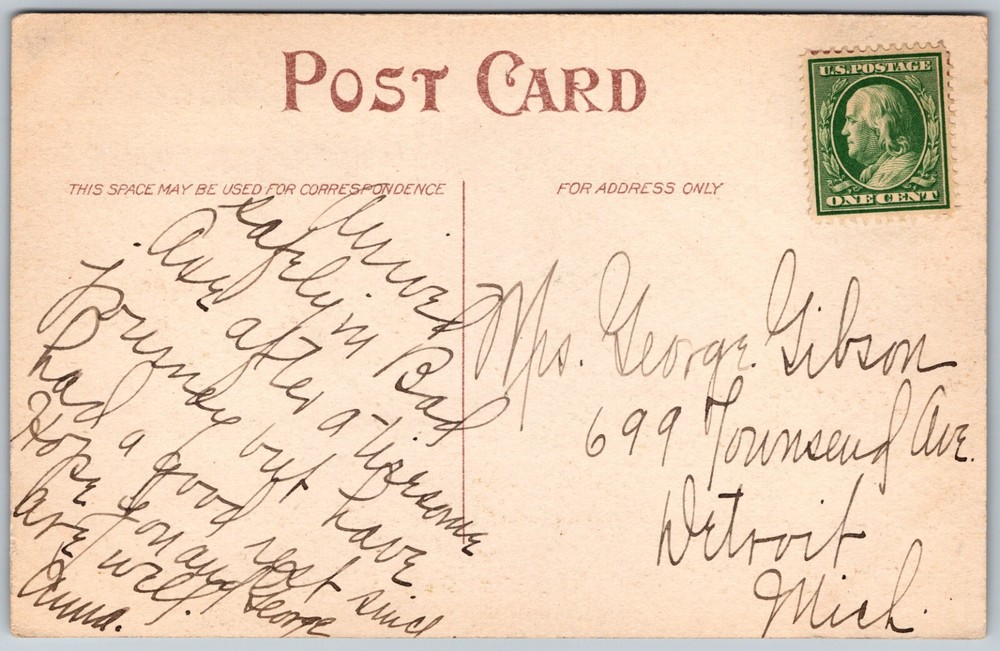 POST CARD
U.S. POSTAGE
ONE CENT
THIS SPACE MAY BE USED FOR CORRESPONDENCE
FOR ADDRESS ONLY
Arrived
safely in Bad
Axe after a tiresome
Journey but have
had a good rest since
Hope you and George
are well.
Anna.
Mrs. George Gibson
699 Townsend Ave.
Detroit
Mich.